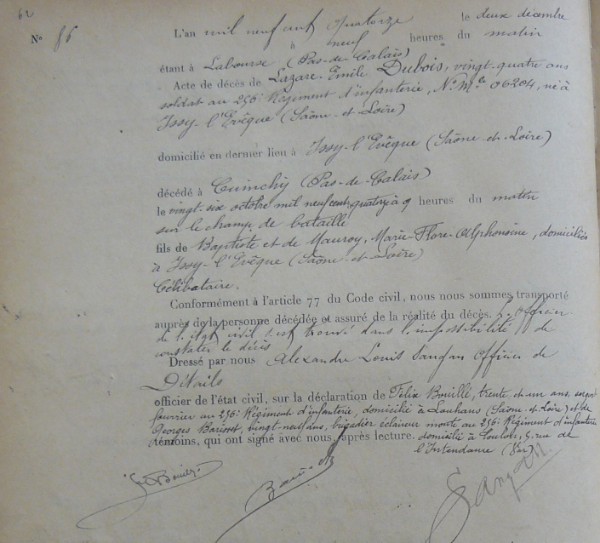 62
N° 86
L'an mil neuf cent quatorze le deux décembre
à neuf heures du matin
étant à Labourse (Pas-de-Calais)
Acte de décès de Lazare-Emile Dubois, vingt-quatre ans
soldat au 256e Régiment d'infanterie, N° Mle 06204, né à
Issy-l'Evêque (Saône-et-Loire)
domicilié en dernier lieu à Issy-l'Evêque (Saône-et-Loire)
décédé à Cuinchy (Pas-de-Calais)
le vingt-six octobre mil neuf cent quatorze à 9 heures du matin
sur le champ de bataille
fils de Baptiste et de Mauroy, Marie-Flore-Alphonsine, domiciliés
à Issy-l'Evêque (Saône-et-Loire)
Célibataire.
Conformément à l'article 77 du Code civil, nous nous sommes transporté
auprès de la personne décédée et assuré de la réalité du décès. L'officier
de l'état civil s'est trouvé dans l'impossibilité de
constater le décès
Dressé par nous Alexandre Louis Officier de
Détails
officier de l'état civil, sur la déclaration de Félix Bouillé, trente et un ans, sergent
fourrier au 256e Régiment d'infanterie, domicilié à Louhans (Saône et Loire) et de
Georges vingt-neuf ans, brigadier éclaireur monté au 256e Régiment d'infanterie
témoins, qui ont signé avec nous après lecture. domicilié à Toulon, 9, rue de
l'Intendance (Var)